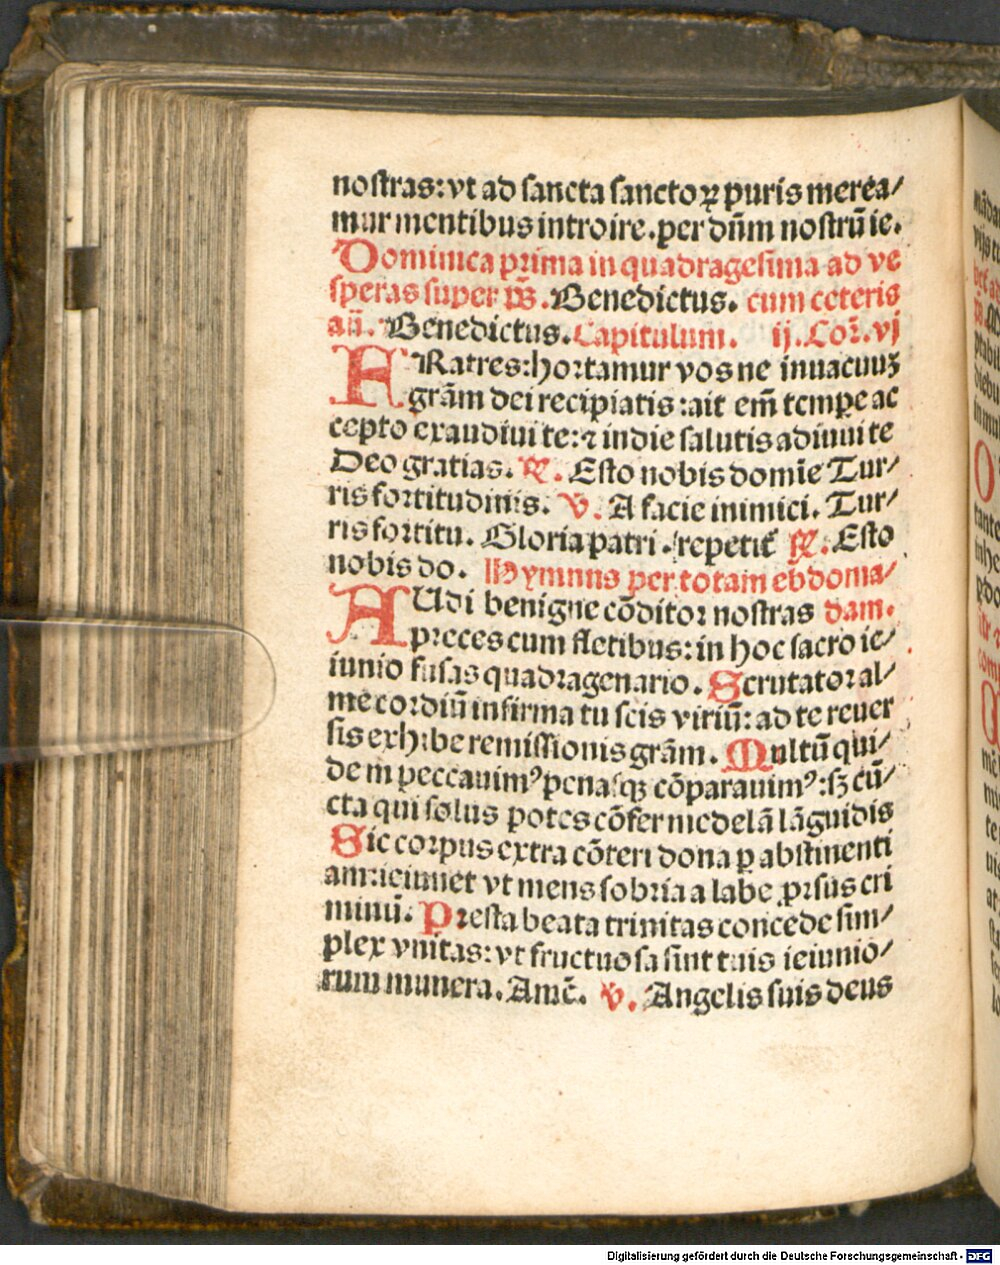 nostras:vt ad sancta sanctoꝝ puris merea/
mur mentibus introire.per dn̄m nostrū ie.
Dominica prima in quadragesima ad ve
speras super ps̄.Benedictus. cum ceteris
añ. Benedictus.Capitulum. ij.Coꝛ̄.vj
FRatres:hoꝛtamur vos ne in vacuuꝫ
grām dei recipiatis:ait em̄ tempꝑe ac
cepto exaudiui te:⁊ in die salutis adiuui te
Deo gratias. ℟. Esto nobis domīe Tur/
ris foꝛtitudinis. ℣. A facie inimici. Tur/
ris foꝛtitu. Gloria patri. repetit̄ ℟.Esto
nobis do. Hymnus per totam ebdoma/
AUdi benigne cōditoꝛ nostras dam.
preces cum fletibus:in hoc sacro ie/
iunio fusas quadragenario. Scrutatoꝛ al/
me coꝛdiū infirma tu scis viriū:ad te reuer
sis exhibe remissionis grām. Multū qui/
dem peccauimꝰ penasqꝫ cōparauimꝰ:sꝫ cū/
cta qui solus potes cōfer medelā lāguidis
Sic coꝛpus extra cōteri dona ꝑ abstinenti
am:ieiunet vt mens sobꝛia a labe pꝛsus cri
minū. Pꝛesta beata trinitas concede sim/
plex vnitas:vt fructuosa sint tuis ieiunio/
rum munera.Amē. ℣. Angelis suis deus
Digitalisierung gefördert durch die Deutsche Forschungsgemeinschaft - DFG